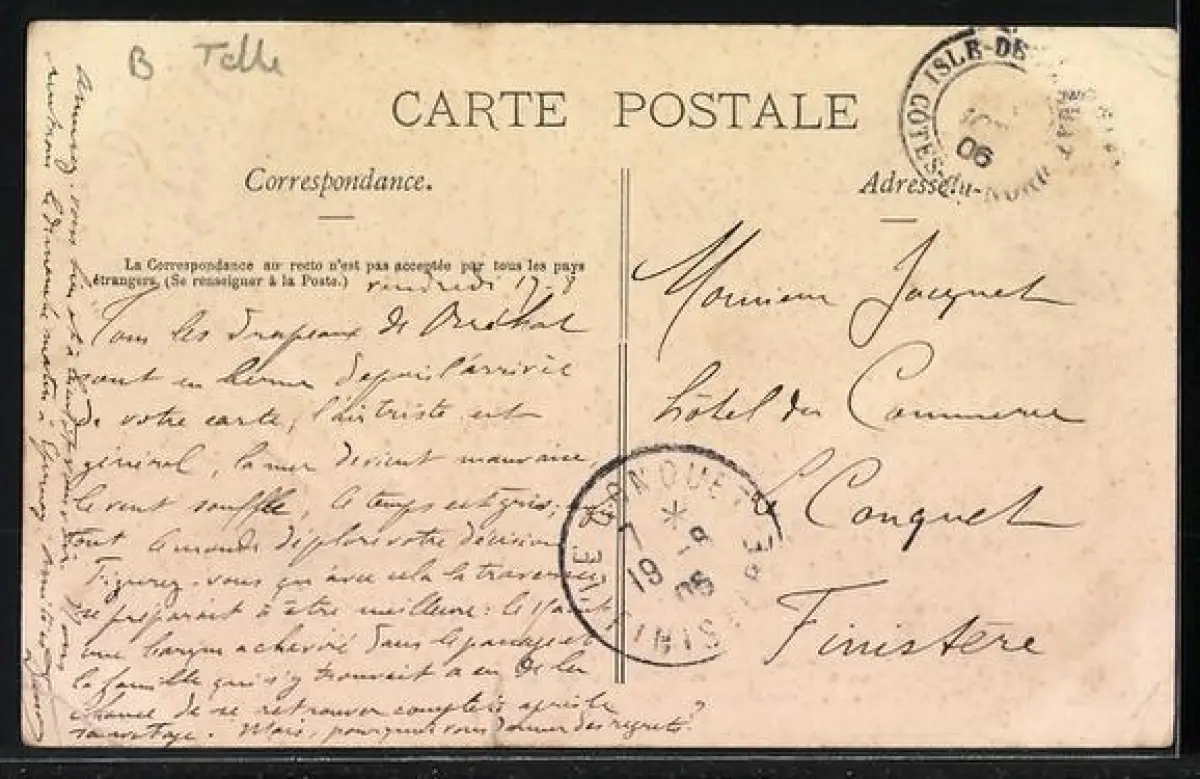 B Telle
CARTE POSTALE
Correspondance.
Adresse
La Correspondance au recto n'est pas acceptée par tous les pays
étrangers. (Se renseigner à la Poste.)
vendredi 17-8
Tous les drapeaux de Bréhat
sont en berne depuis l'arrivée
de votre carte, l'air triste est
général, la mer devient mauvaise
le vent souffle, le temps est gris,
tout le monde déplore votre décision
Figurez-vous qu'avec cela la traversée
se préparait à être meilleure: le
une barque a chaviré dans le passage et
la famille qui s'y trouvait a eu de la
chance de se retrouver complète après le
sauvetage. Mais, pourquoi vous donner des regrets?
Amusez-vous bien et à bientôt Nous
rentrons dimanche matin à amitiés
Monsieur Jacquet
hôtel du Commerce
Le Conquet
Finistère
ISLE-DE-BREHAT
COTES-DU-NORD
06
LE CONQUET
FINISTERE
7
19 -8
06